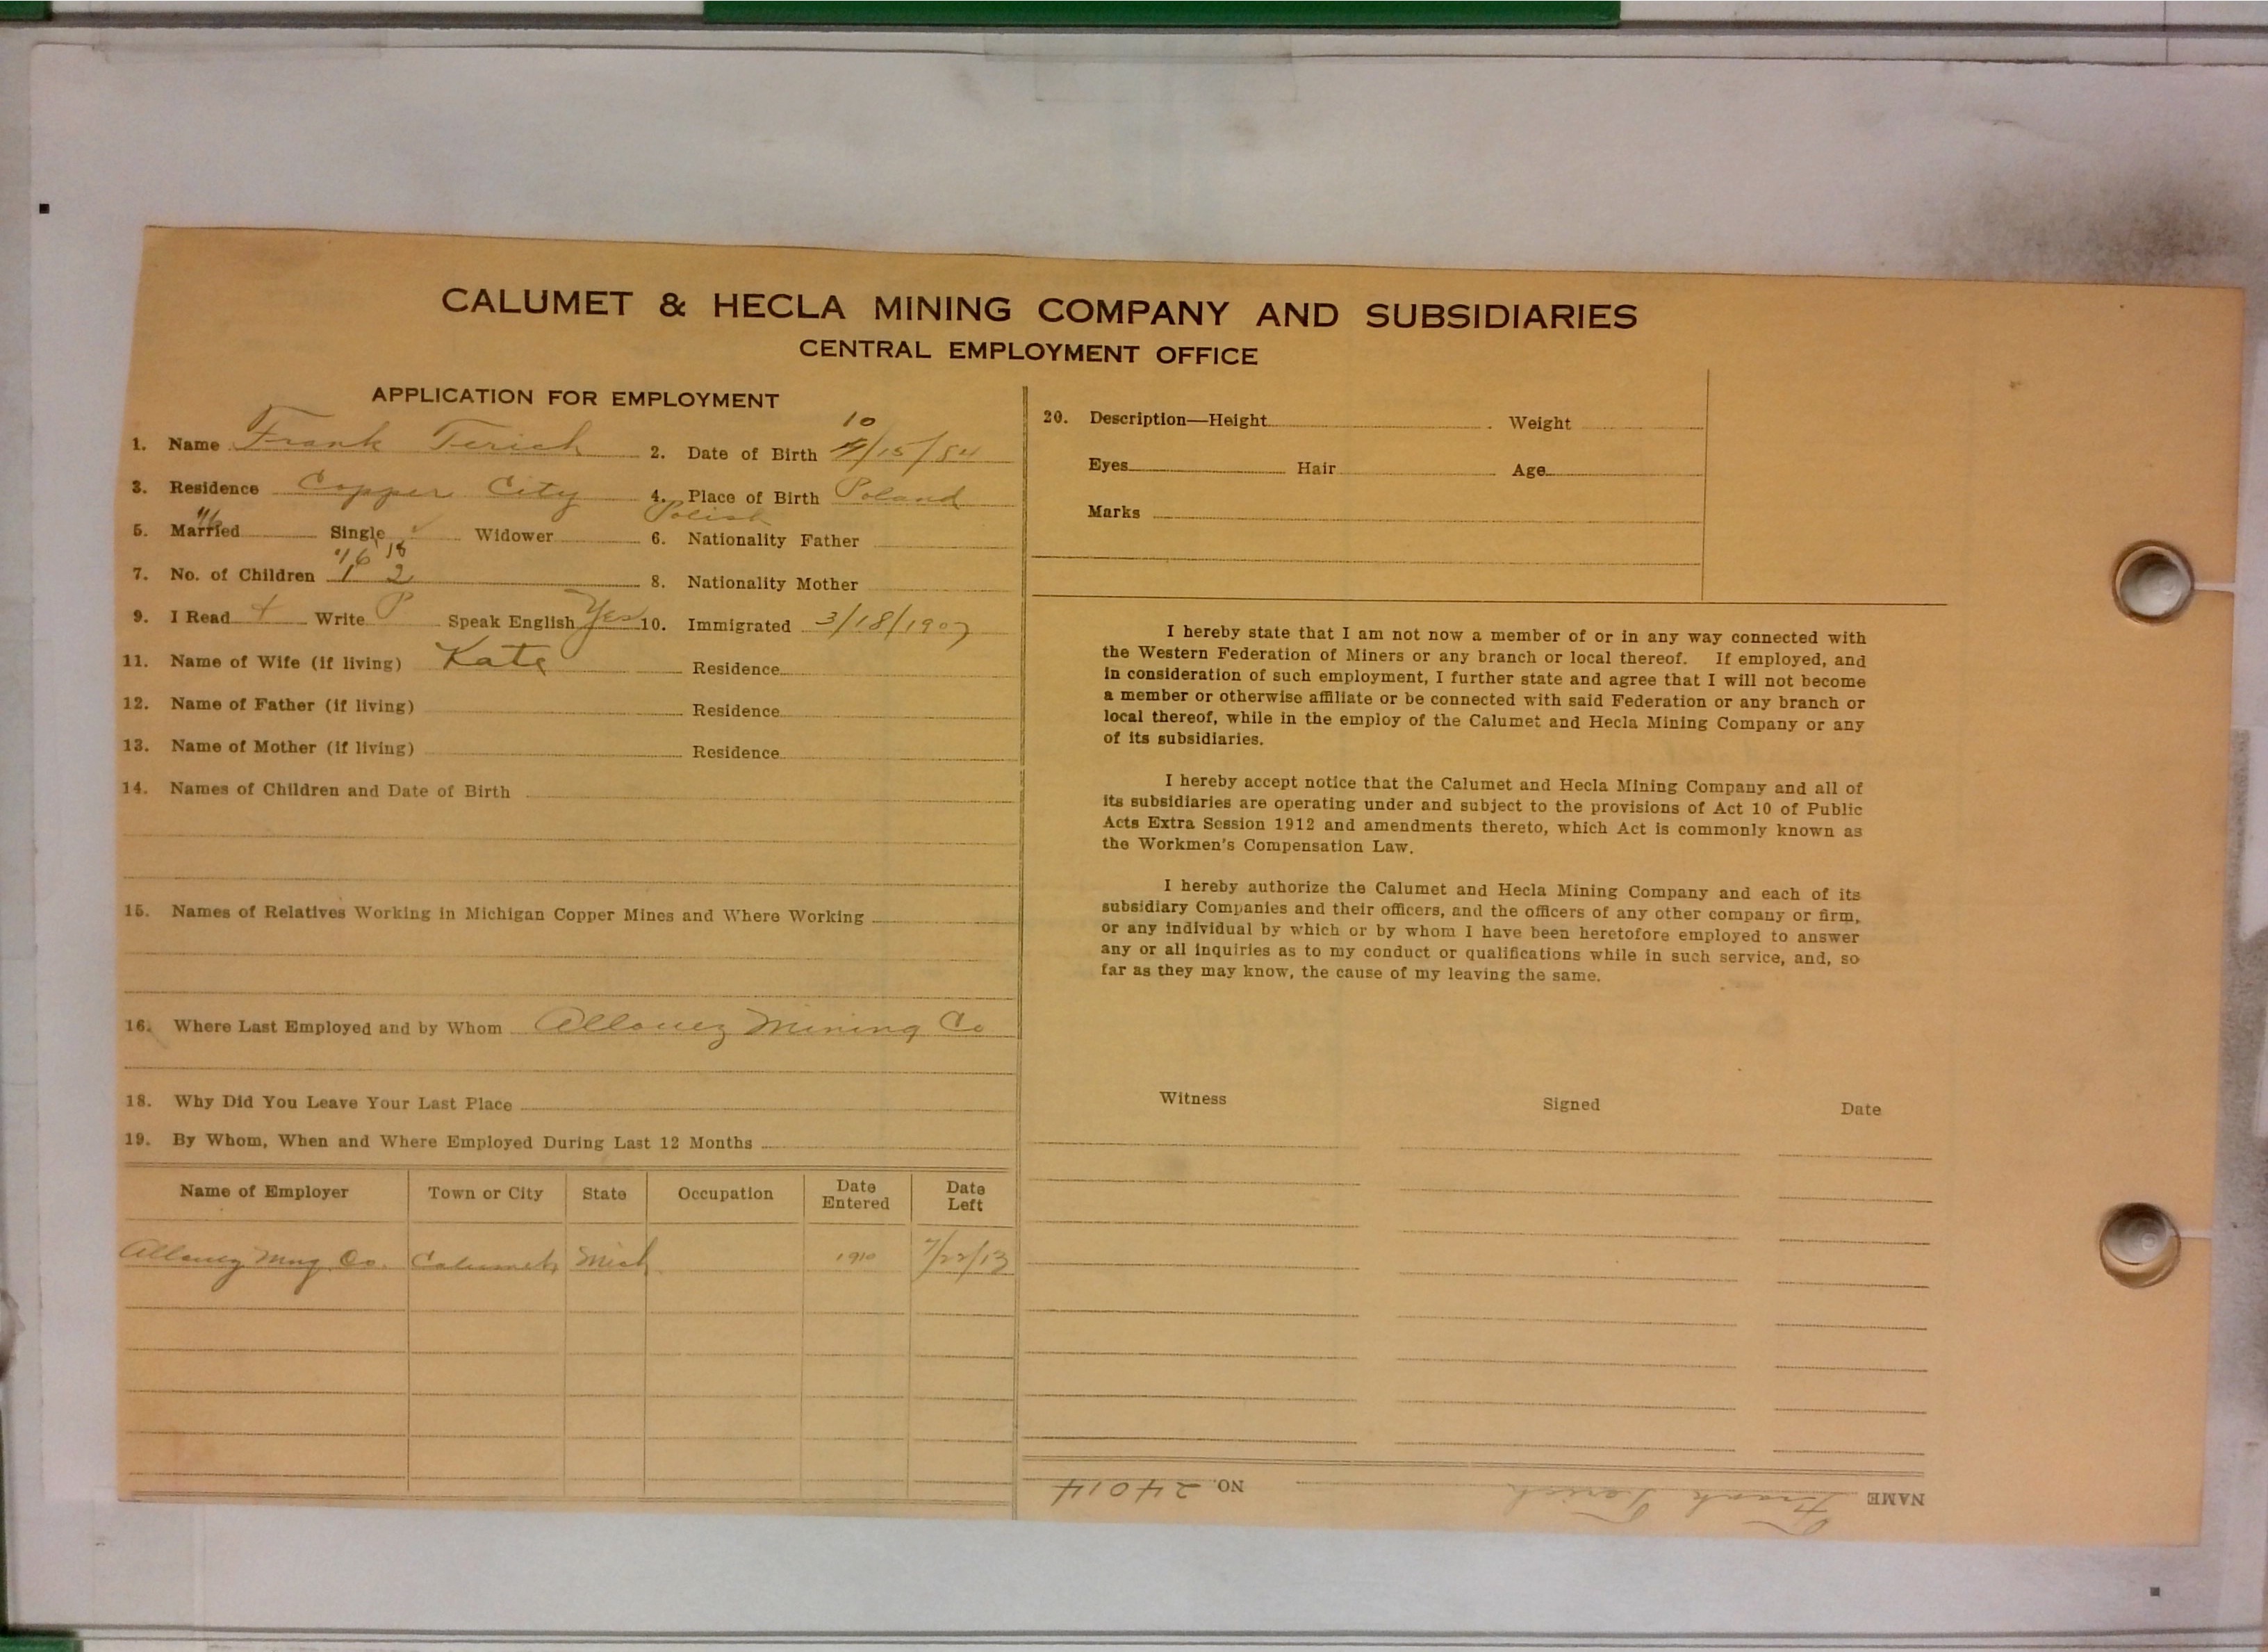 CALUMET & HECLA MINING COMPANY AND SUBSIDIARIES
CENTRAL EMPLOYMENT OFFICE
APPLICATION FOR EMPLOYMENT
10
1. Name Frank Terich 2. Date of Birth 4/15/84
3. Residence Copper City 4. Place of Birth Poland
Polish
'16
5. Married Single ✓ Widower 6. Nationality Father
'16 '18
7. No. of Children 1 2 8. Nationality Mother
9. I Read + Write P Speak English Yes 10. Immigrated 3/18/1907
11. Name of Wife (if living) Kate Residence
12. Name of Father (if living) Residence
13. Name of Mother (if living) Residence
14. Names of Children and Date of Birth
15. Names of Relatives Working in Michigan Copper Mines and Where Working
16. Where Last Employed and by Whom Allouez Mining Co
18. Why Did You Leave Your Last Place
19. By Whom, When and Where Employed During Last 12 Months
Name of Employer Town or City State Occupation Date Entered Date Left
Allouez Mng Co. Calumet Mich 1910 7/22/13
20. Description—Height Weight
Eyes Hair Age
Marks
I hereby state that I am not now a member of or in any way connected with
the Western Federation of Miners or any branch or local thereof. If employed, and
in consideration of such employment, I further state and agree that I will not become
a member or otherwise affiliate or be connected with said Federation or any branch or
local thereof, while in the employ of the Calumet and Hecla Mining Company or any
of its subsidiaries.
I hereby accept notice that the Calumet and Hecla Mining Company and all of
its subsidiaries are operating under and subject to the provisions of Act 10 of Public
Acts Extra Session 1912 and amendments thereto, which Act is commonly known as
the Workmen's Compensation Law.
I hereby authorize the Calumet and Hecla Mining Company and each of its
subsidiary Companies and their officers, and the officers of any other company or firm,
or any individual by which or by whom I have been heretofore employed to answer
any or all inquiries as to my conduct or qualifications while in such service, and, so
far as they may know, the cause of my leaving the same.
Witness Signed Date
NAME Frank Terich NO. 24014